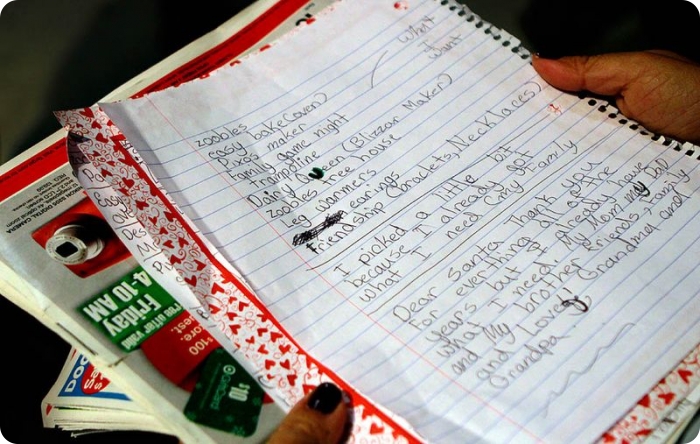 what
I
want
zoobles
easy bake(oven)
Pixos maker
Family game night
Trampoline
Dairy Queen (Blizzar Maker)
zoobles tree house
leg warmers
earings
friendship bracklets, Necklaces)
I picked a little bit
because I already got
what I need Cmy family
Dear Santa Thank you
for everything all of the
years but I already have
what I need, My Mom my Dad
and My brother, friends, Family
and Love! Grandma and
Grandpa
Friday
4-10 AM
$100
$10